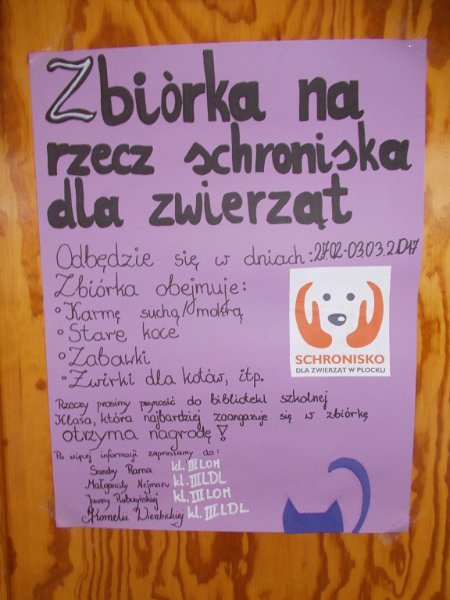 Zbiòrka na
rzecz schroniska
dla zwierząt
Odbędzie się w dniach: 27.02-03.03.2017
Zbiórka obejmuje:
• Karmę suchą/mokrą
• Stare koce
• Zabawki
• Żwirki dla kotów, itp.
SCHRONISKO
DLA ZWIERZĄT W PŁOCKU
Rzeczy prosimy przynosić do biblioteki szkolnej
Klasa, która najbardziej zaangażuje się w zbiórkę
otrzyma nagrodę!
Po więcej informacji zapraszamy do:
Sandry kl. III LOM
Małgorzaty kl. III LDL
Joanny kl. III LOM
kl. III LDL